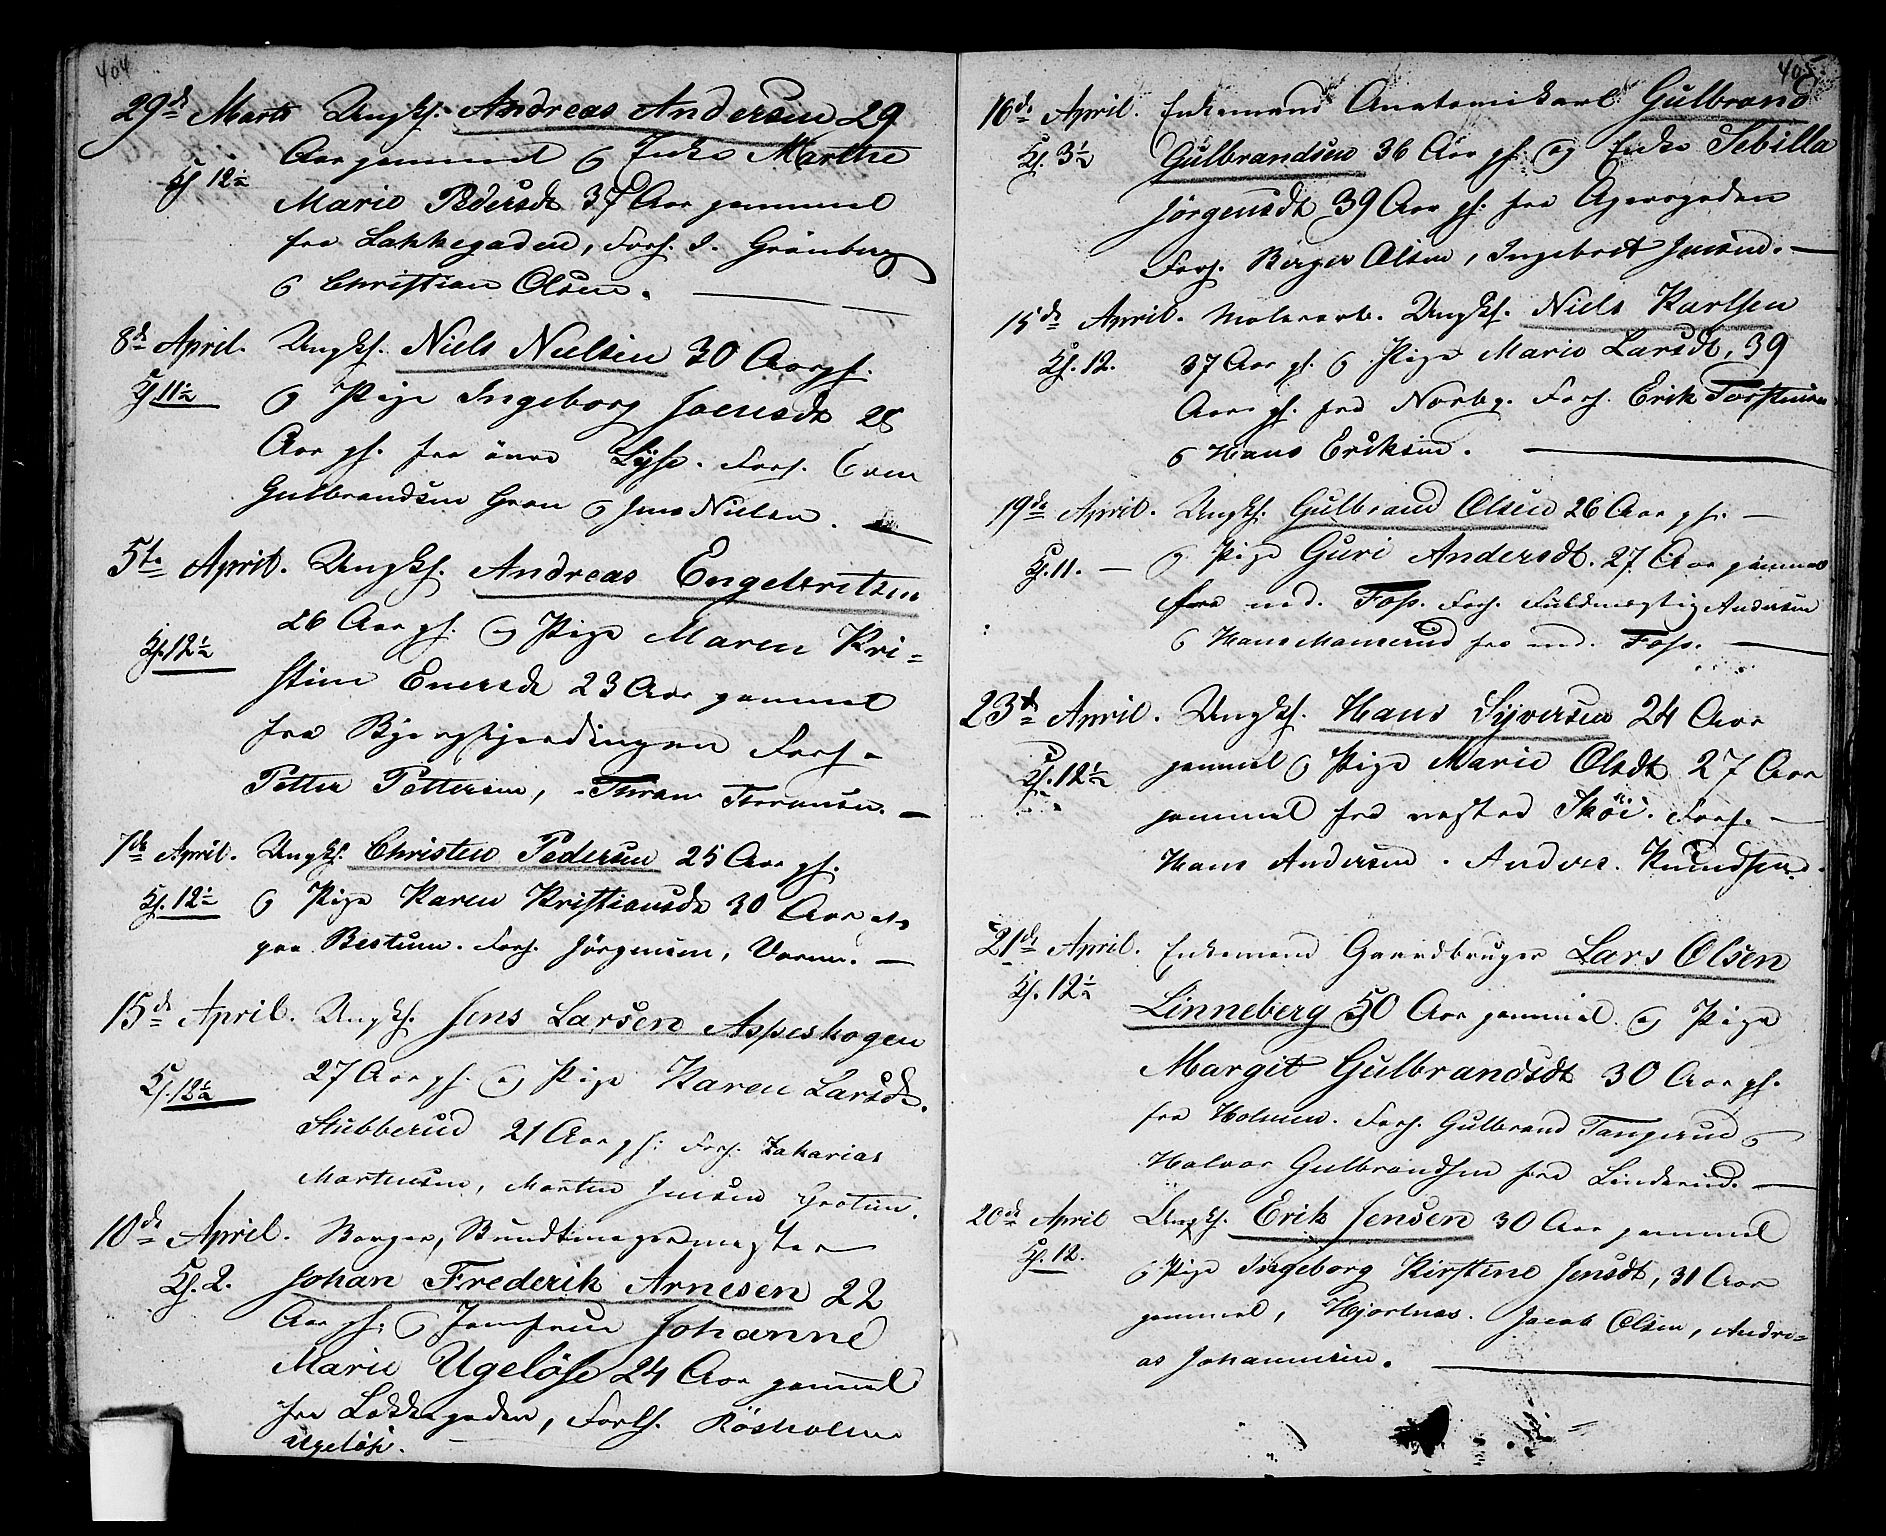 404
29de Marts Ungkf. Andreas Andersen 29
Aar gammel og Enke Marthe
Kl 12½
Marie Pedersdt 37 Aar gammel
fra Lakkegaden, Forf. I. Grönberg
og Christian Olsen.
8de April. Ungkf. Niels Nielsen 30 Aar gl.
Kl 11½ og Pige Ingeborg Joensdt 28
Aar gl. fra övre Lysø. Forf. Even
Gulbrandsen Gran og Jens Nielsen.
5te April. Ungkf. Andreas Engebretsen
26 Aar gl. og Pige Maren Kri=
Kl. 12½
stine Enersdt 23 Aar gammel
fra Bjergfjerdingen Forf.
Petter Pettersen, Thran Thransen.
7de April. Ungkf. Christen Pedersen 25 Aar gl.
Kl. 12½ og Pige Karen Kristiansdt 30 Aar
paa Bestum. Forf. Jörgensen,
15de April. Ungkf. Jens Larsen Aspeskogen
27 Aar gl. og Pige Karen Larsdt.
Kl. 12½
Stubberud 21 Aar gl. Forf. Zakarias
Mortensen, Morten Jensen Grotim.
10de April. Borger, Bundtmagermester
Kl. 2. Johan Frederik Arnesen 22
Aar gl. og Jomfrue Johanne
Marie Ugelöse 24 Aar gammel
fra Lakkegaden, Forlf. Rösholm
Ugelöse.
405.
16de April. Enkemand Anatomikarl Gulbrand
Kl. 3½ Gulbrandsen 36 Aar gl. og Enke Sebilla
Jörgensdt 39 Aar gl. fra Agersgaden
Forf. Berger Olsen, Ingebret Jensen.
15de April. Malerarb. Ungkf. Niels Karlsen
Kl. 12. 37 Aar gl. og Pige Marie Larsdt, 39
Aar gl. fra Norbg. Forf. Erik Torstensen
og Hans Eriksen.
19de April. Ungkf. Gulbrand Olsen 26 Aar gl.
Kl. 11. og Pige Guri Andersdt. 27 Aar gammel
fra nd. Foss. Forf. Fuldmegtig Andersen
og Hans Monserud fra nd. Foss.
23de April. Ungkf. Hans Syversen 24 Aar
Kl. 12½ gammel og Pige Marie Olsdt 27 Aar
gammel fra vestre Sköi. Forf.
Hans Andersen. Andres. Knudsen.
21de April. Enkemand Gaardbruger Lars Olsen
Kl. 12½
Linneberg 50 Aar gammel og Pige
Margit Gulbrandsdt 30 Aar gl.
fra Holmen. Forf. Gulbrand Tangerud og
Halvor Gulbrandsen fra Linderud.
20de April Ungkf. Erik Jensen 30 Aar gammel
Kl. 12. og Pige Ingeborg Kirstine Jensdt, 31 Aar
gammel, Hjortnæs. Jacob Olsen, Andre=
as Johannesen.